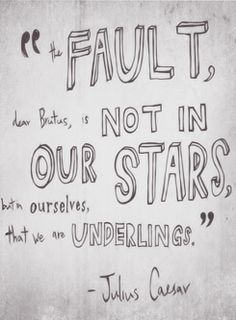 “the FAULT,
dear Brutus, is NOT IN
OUR STARS,
but in ourselves,
that we are UNDERLINGS.”
- Julius Caesar